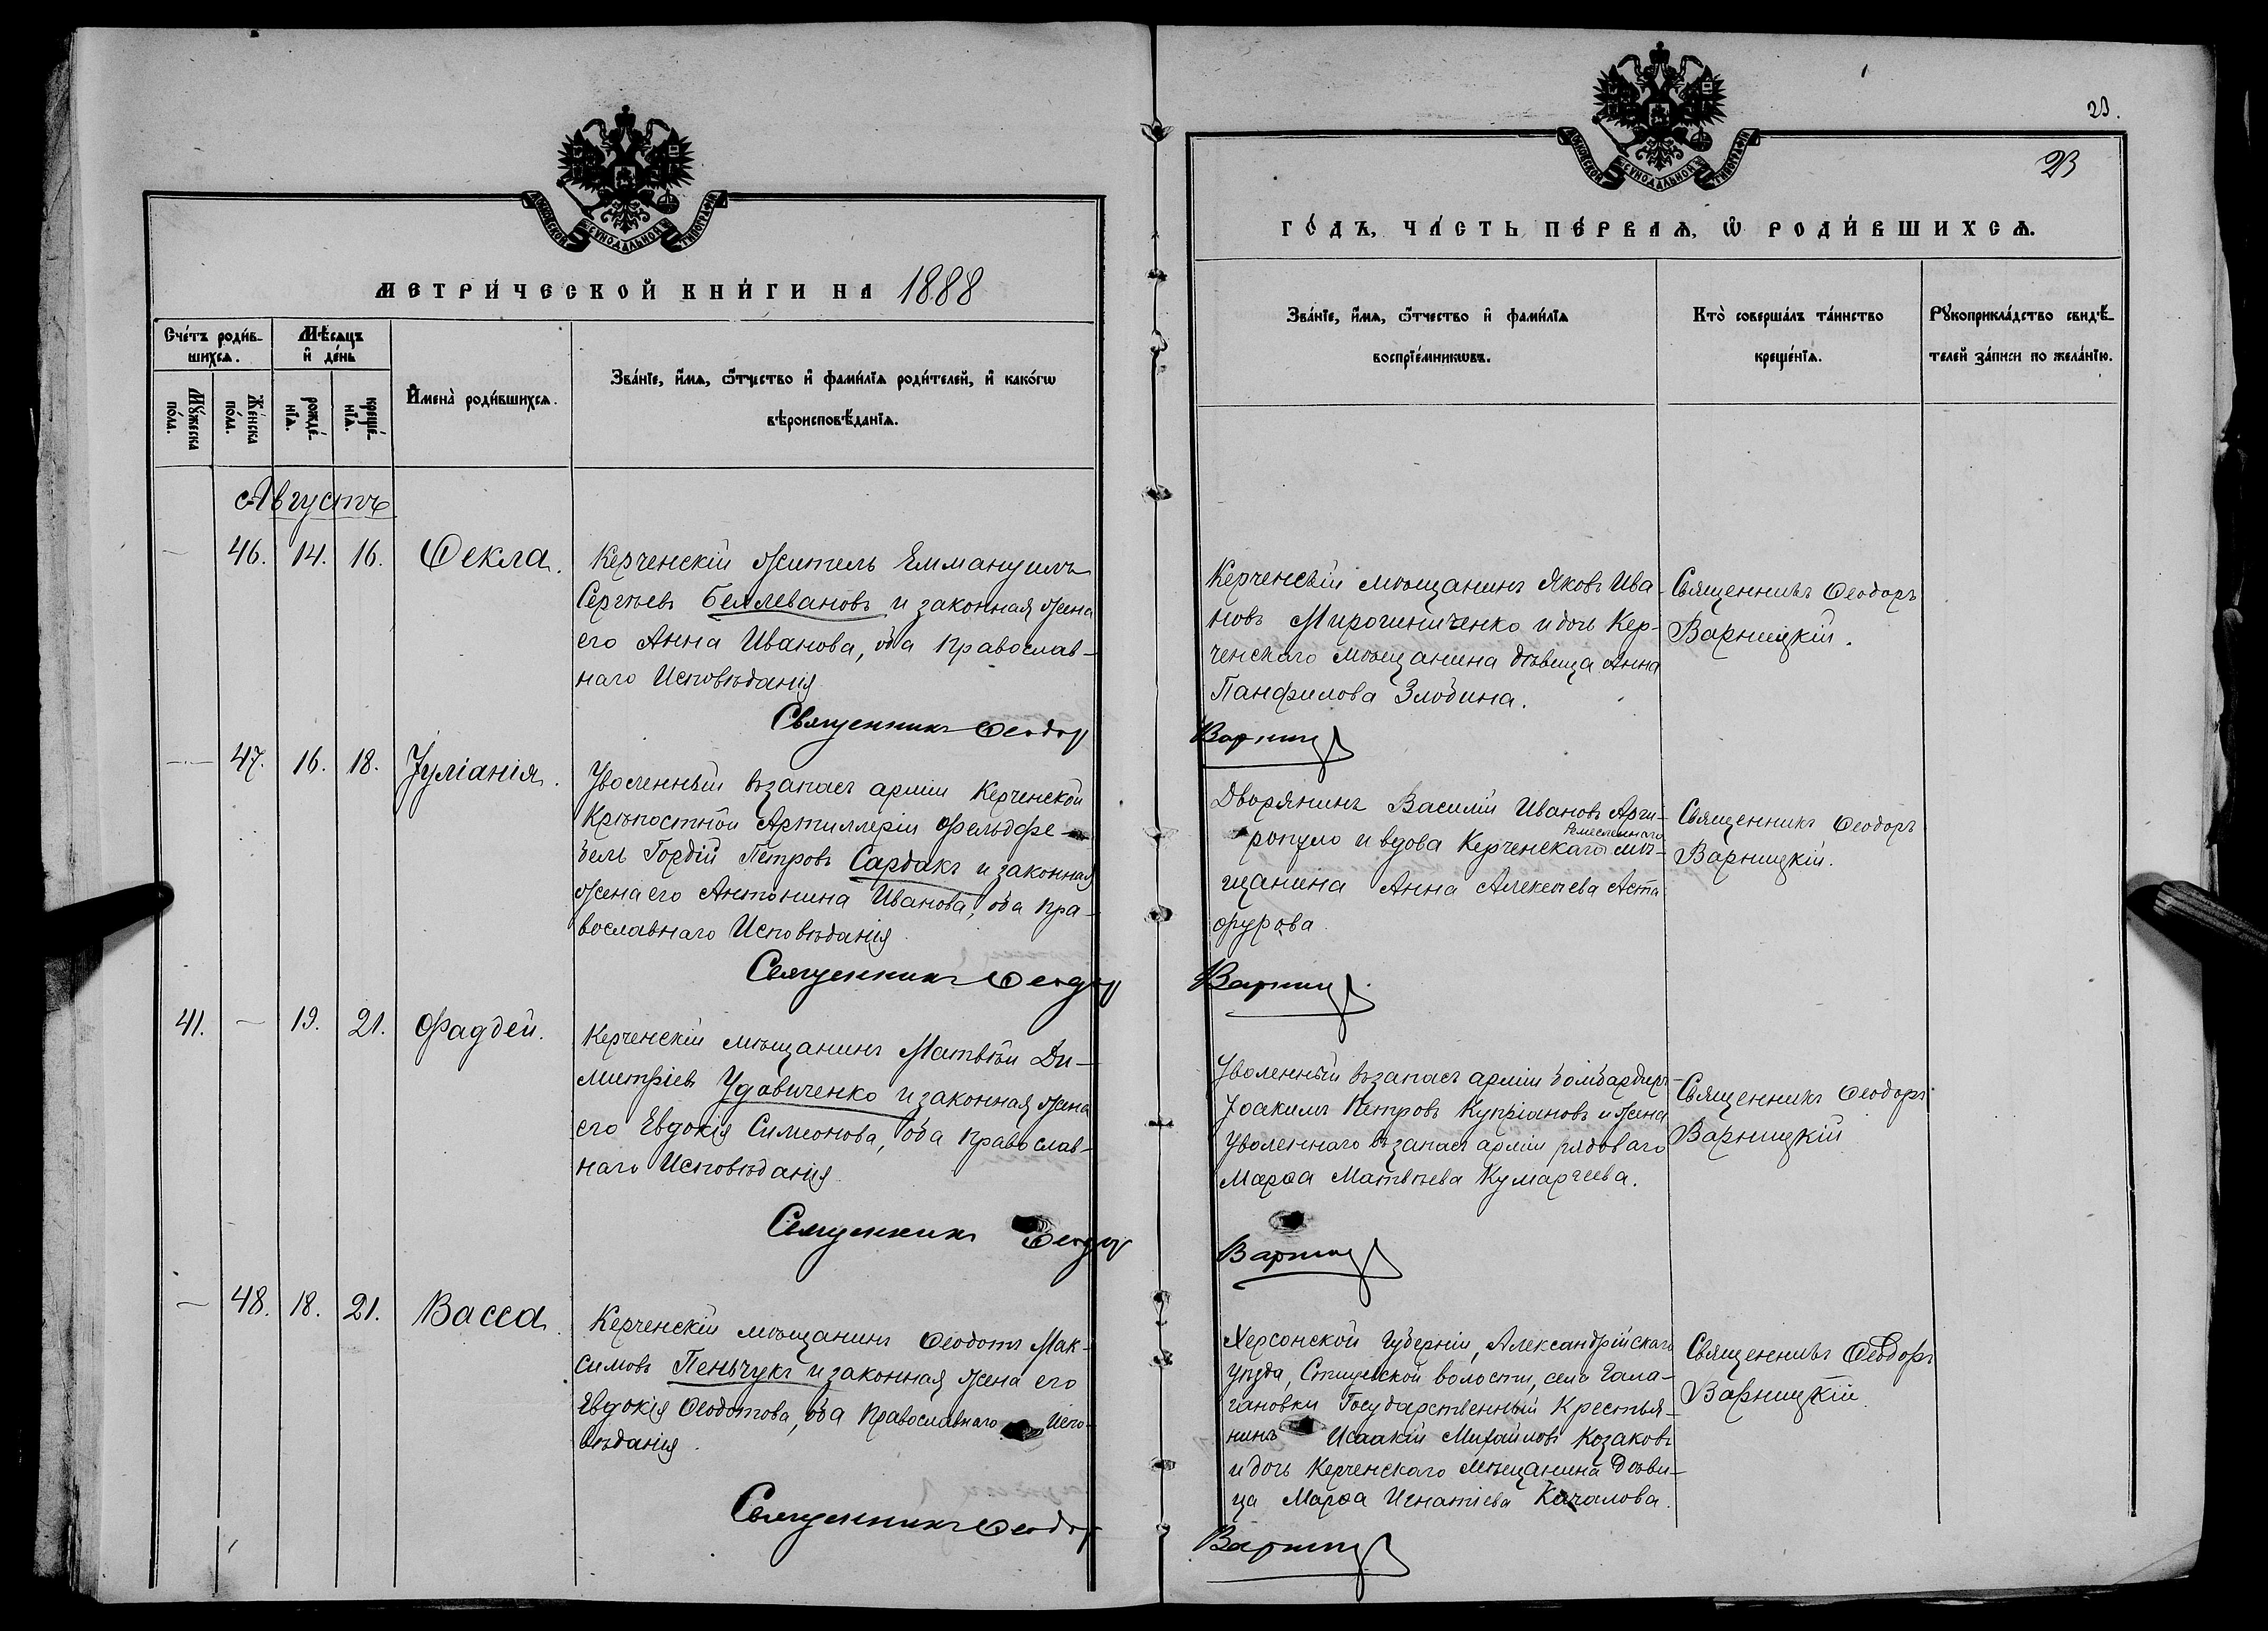 МОСКОВСКОЙ СѴНОДАЛЬНОЙ ТИПОГРАФІИ
МЕТРИ́ЧЕСКОЙ КНИ́ГИ НА 1888
Сче́тъ роди́в-
шихсѧ.
Мѣ́сѧцъ
и҆ де́нь
Мꙋ́жеска
по́ла.
Же́нска
по́ла.
рожде́-
нїѧ.
креще́-
нїѧ.
И҆мена̀ роди́вшихсѧ.
Зва́нїе, и҆́мѧ, ѻ҆́тчество и҆ фами́лїѧ роди́телей, и҆ како́гѡ
вѣроисповѣ́данїѧ.
Августъ
— 46. 14. 16. Ѳекла.
Керченскій житель Еммануилъ
Сергѣевъ Беллевановъ и законная жена
его Анна Иванова, оба Православ-
наго Исповѣданія
Священникъ Ѳеодор
— 47. 16. 18. Іуліанія.
Уволенный въ запасъ арміи Керченской
Крѣпостной Артиллеріи Фельдфе-
бель Гордій Петровъ Сардакъ и законная
жена его Антонина Иванова, оба Пра-
вославнаго Исповѣданія
Священникъ Ѳеодор
41. — 19. 21. Фаддей.
Керченскій мѣщанинъ Матвѣй Ди-
митріевъ Удовиченко и законная жена
его Евдокія Симеонова, оба Православ-
наго Исповѣданія
Священникъ Ѳеодор
— 48. 18. 21. Васса.
Керченскій мѣщанинъ Ѳеодотъ Мак-
симовъ Пеньчукъ и законная жена его
Евдокія Ѳеодотова, оба Православнаго Испо-
вѣданія.
Священникъ Ѳеодор
МОСКОВСКОЙ СѴНОДАЛЬНОЙ ТИПОГРАФІИ
23.
23
ГО́ДЪ, ЧА́СТЬ ПЕ́РВАѦ, Ѡ҆ РОДИ́ВШИХСѦ.
Зва́нїе, и҆́мѧ, ѻ҆́тчество и҆ фами́лїѧ
воспрїе́мникѡвъ.
Кто̀ соверша́лъ та́инство
креще́нїѧ.
Рꙋкоприкла́дство свидѣ́-
телей за́писи по жела́нїю.
Керченскій мѣщанинъ Яковъ Ива-
новъ Мирошниченко и дочь Кер-
ченскаго мѣщанина дѣвица Анна
Панфилова Злобина.
Священникъ Ѳеодоръ
Варницкій.
Варниц
Дворянинъ Василій Ивановъ Арги-
ропуло и вдова Керченскаго Ремесленнаго мѣ-
щанина Анна Алексѣева Аста
фурова
Священникъ Ѳеодоръ
Варницкій.
Варниц
Уволенный въ запасъ арміи бомбардиръ
Іоакимъ Петровъ Купріановъ и жена
уволеннаго въ запасъ арміи рядоваго
Марѳа Матвѣева Кумаргеева.
Священникъ Ѳеодоръ
Варницкій
Варниц
Херсонской губерніи, Александрійскаго
уѣзда, волости, села Гала-
гановки Государственный Крестья-
нинъ Исаакій Михайловъ Козаковъ
и дочь Керченскаго Мѣщанина Дѣви-
ца Марѳа Игнатіева Качалова.
Священникъ Ѳеодоръ
Варницкій.
Варниц